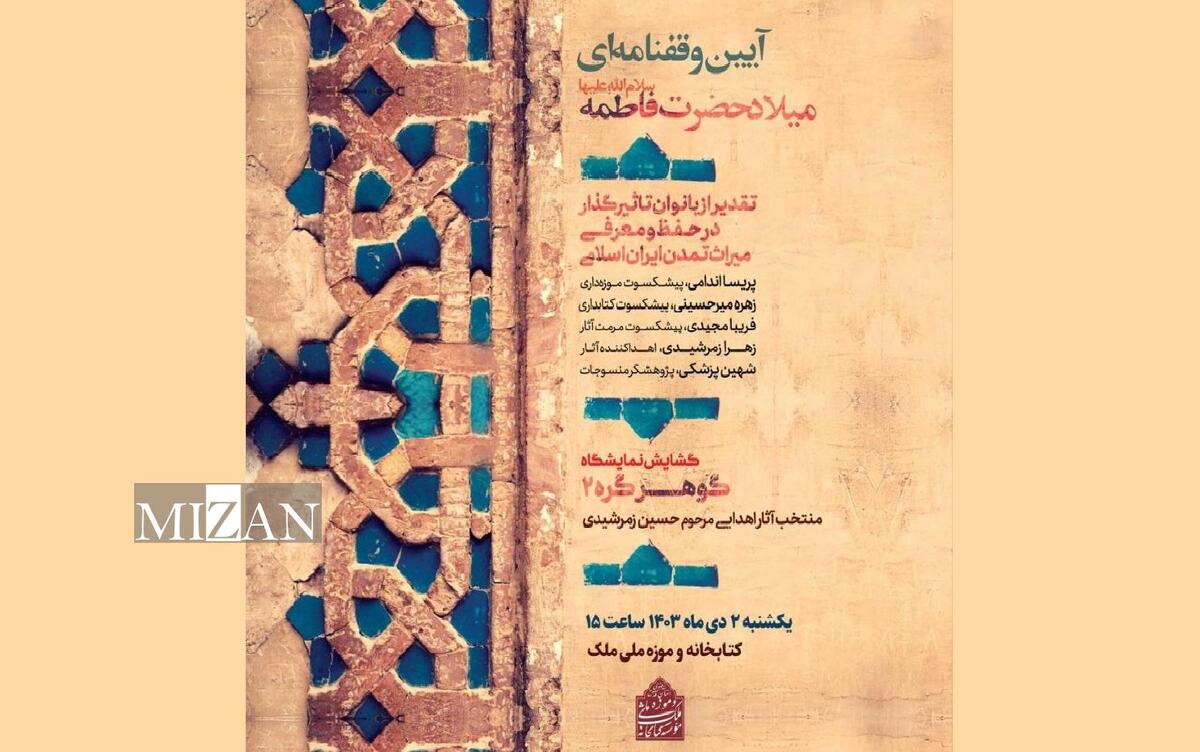 آیین وقفنامه‌ای
سلام الله علیها
میلاد حضرت فاطمه
تقدیر از بانوان تاثیرگذار
در حفظ و معرفی
میراث تمدن ایران اسلامی
پریسا اندامی، پیشکسوت موزه‌داری
زهره میرحسینی، پیشکسوت کتابداری
فریبا مجیدی، پیشکسوت مرمت آثار
زهرا زمرشیدی، اهداکننده آثار
شهین پزشکی، پژوهشگر منسوجات
گشایش نمایشگاه
گوهر گره ۲
منتخب آثار اهدایی مرحوم حسین زمرشیدی
MIZAN
یکشنبه ۲ دی ماه ۱۴۰۳ ساعت ۱۵
کتابخانه و موزه ملی ملک